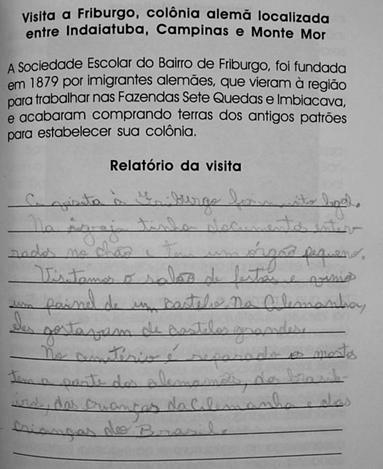 Visita a Friburgo, colônia alemã localizada
entre Indaiatuba, Campinas e Monte Mor
A Sociedade Escolar do Bairro de Friburgo, foi fundada
em 1879 por imigrantes alemães, que vieram à região
para trabalhar nas Fazendas Sete Quedas e Imbiacava,
e acabaram comprando terras dos antigos patrões
para estabelecer sua colônia.
Relatório da visita
A visita à Friburgo foi muito legal.
Na igreja tinha documentos enter
rados no chão e tem um órgão pequeno.
Visitamos o salão de festas e vimos
um painel de um castelo na Alemanha,
eles gostavam de castelos grandes.
No cemitério é separado os mortos
tem a parte dos alemamões, do brasil-
, das crianças da Alemanha e das
crianças do Brasil.